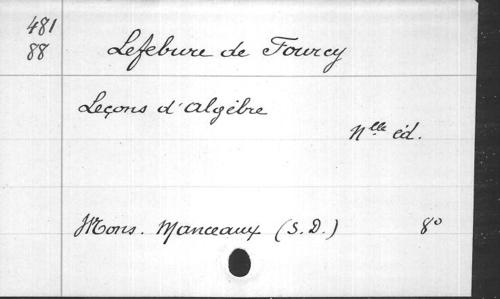 481
88
Lefebure de Fourcy
Leçons d'algèbre
Nlle éd.
Mons. Manceaux (S.D.) 8°